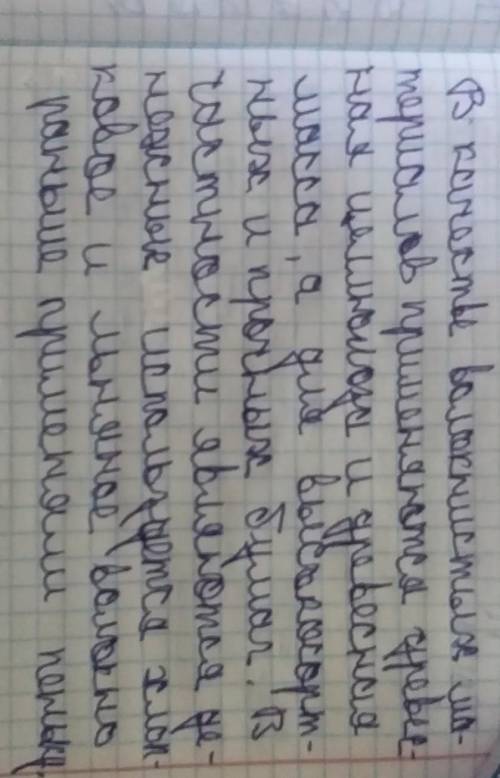 В качестве волокнистых ма-
териалов применяются древес-
ная целлюлоза и древесная
масса, а для высокосорт-
ных и прочных бумаг. В
частности являются де-
нежные используется хлоп-
ковое и льняное волокно
раньше применяли пеньку.